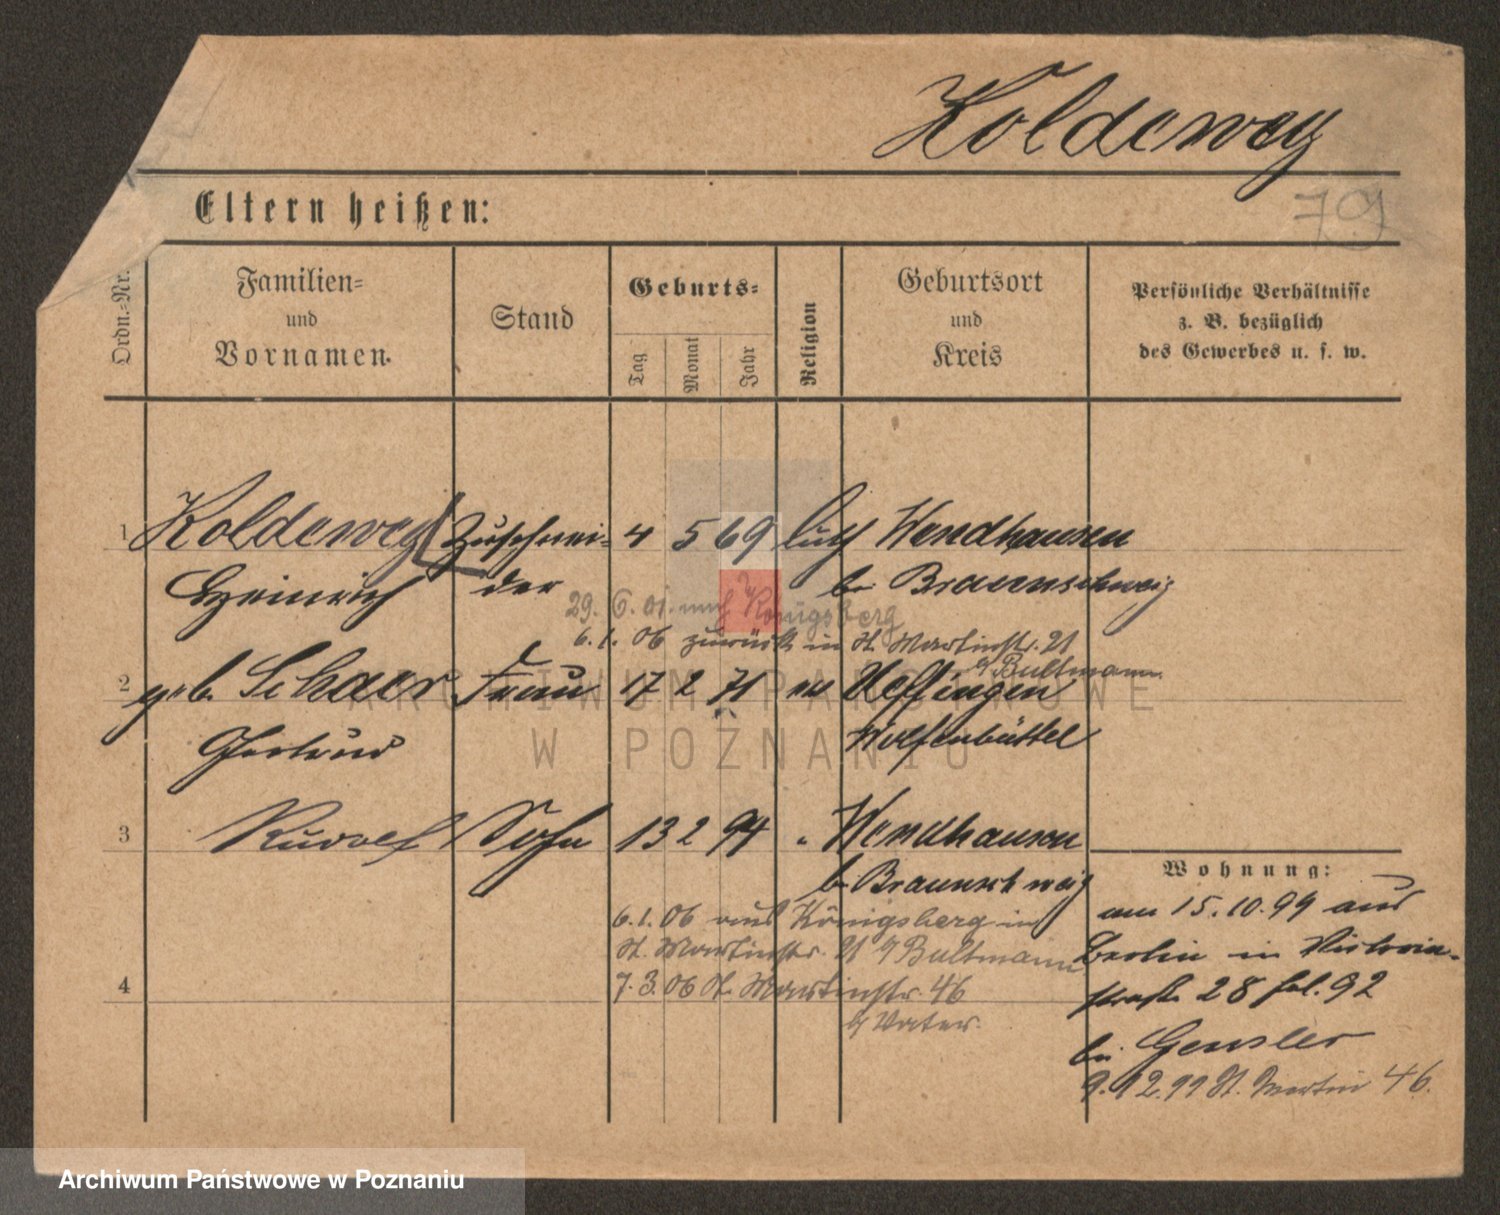 Koldewey
79
Eltern heißen:
Ordn.-Nr.
Familien-
und
Vornamen.
Stand
Geburts-
Tag
Monat
Jahr
Religion
Geburtsort
und
Kreis
Persönliche Verhältnisse
z. B. bezüglich
des Gewerbes u. s. w.
1 Koldewey Zuschnei- 4 5 69 luth Wendhausen
Heinrich der b. Braunschweig
29. 6. 01. nach Königsberg
6. 1. 06 zurück in St. Martinstr. 21
b/ Bultmann
2 geb. Schaer Frau 17 2 71 Ueffingen
Gertrud Wolfenbüttel
3 Rudolf Sohn 13 2 94 " Wendhausen
b. Braunschweig
6. 1. 06 aus Königsberg in
St. Martinstr. 21 b/ Bultmann
4 7. 3. 06 St. Martinstr. 46
b/ Vater.
Wohnung:
am 15. 10. 99 aus
Berlin in Victoria-
straße 28 fol. 92
bei Gensler
9. 12. 99 St. Martin 46.
ARCHIWUM PAŃSTWOWE
W POZNANIU
Archiwum Państwowe w Poznaniu